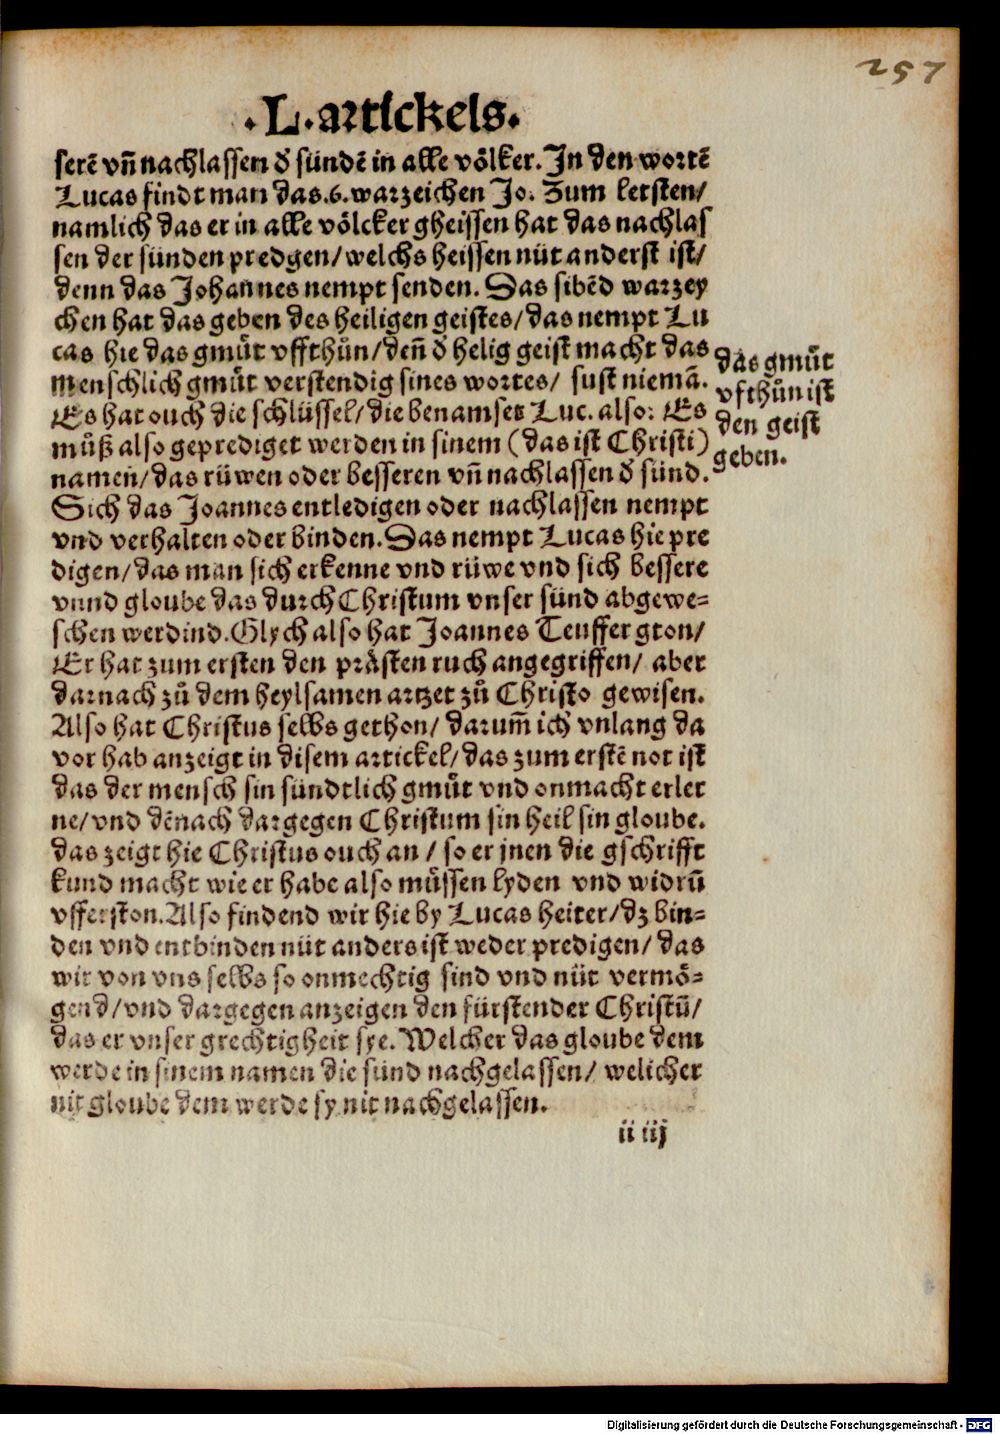 257
.L.artickels.
serē vñ nachlassen ð sündē in alle völker. In den wortē
Lucas findt man das .6. warzeichen Jo. Zum letsten/
namlich das er in alle völcker gheissen hat das nachlas
sen der sünden predgen/welchs heissen nüt anderst ist/
denn das Johannes nempt senden. Das sibēd warzey
chen hat das geben des heiligen geistes/das nempt Lu
cas hie das gmůt vffthůn/deñ ð helig geist macht das
menschlich gmůt verstendig sines wortes/ sust niemā.
Es hat ouch die schlüssel/die benamset Luc. also: Es
můß also geprediget werden in sinem (das ist Christi)
namen/das rüwen oder besseren vñ nachlassen ð sünd.
Sich das Joannes entledigen oder nachlassen nempt
vnd verhalten oder binden. Das nempt Lucas hie pre
digen/das man sich erkenne vnd rüwe vnd sich bessere
vnnd gloube das durch Christum vnser sünd abgewe-
schen werdind. Glych also hat Joannes Teuffer gton/
Er hat zum ersten den prästen ruch angegriffen/ aber
darnach zů dem heylsamen artzet zů Christo gewisen.
Also hat Christus selbs gethon/ darum̃ ich vnlang da
vor hab anzeigt in disem artickel/das zum erstē not ist
das der mensch sin sündtlich gmůt vnd onmacht erler
ne/vnd dēnach dargegen Christum sin heil sin gloube.
das zeigt hie Christus ouch an / so er jnen die gschrifft
kund macht wie er habe also müssen lyden vnd widrū
vfferston. Also findend wir hie by Lucas heiter/dz bin-
den vnd entbinden nüt anders ist weder predigen/ das
wir von vns selbs so onmechtig sind vnd nüt vermö-
gend/vnd dargegen anzeigen den fürstender Christū/
das er vnser grechtigheit sye. Welcher das gloube dem
werde in sinem namen die sünd nachgelassen/ welicher
nit gloube dem werde sy nit nachgelassen.
das gmůt
vfthůn ist
den geist
geben.
ii iij
Digitalisierung gefördert durch die Deutsche Forschungsgemeinschaft - DFG